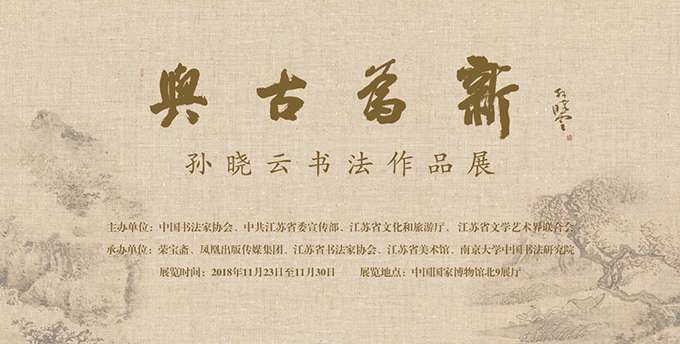 與古為新
孙晓云
孙晓云书法作品展
主办单位：中国书法家协会、中共江苏省委宣传部、江苏省文化和旅游厅、江苏省文学艺术界联合会
承办单位：荣宝斋、凤凰出版传媒集团、江苏省书法家协会、江苏省美术馆、南京大学中国书法研究院
展览时间：2018年11月23日至11月30日 展览地点：中国国家博物馆北9展厅